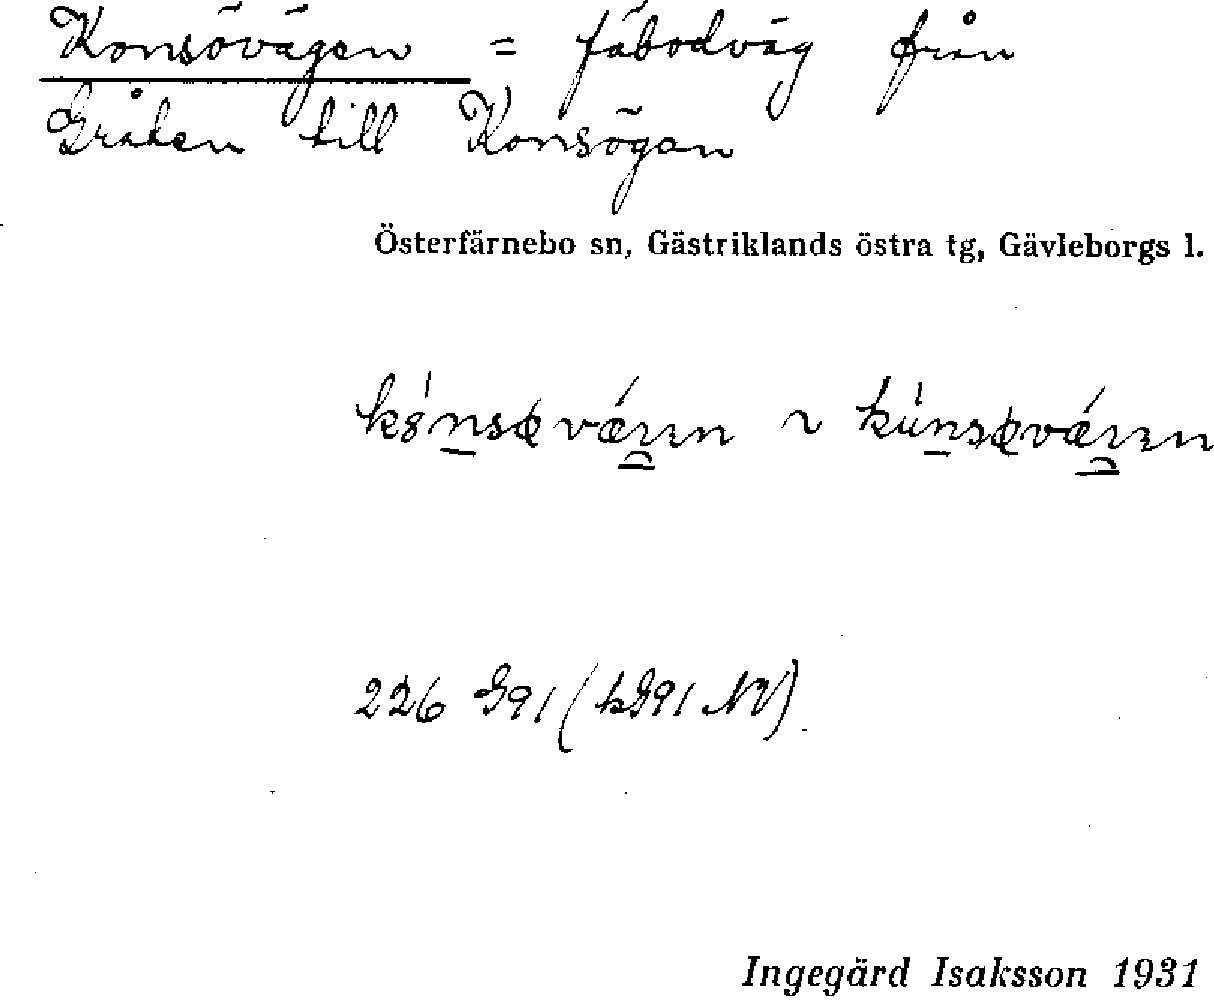 Konsövägen = fäbodväg från
Gråten till Konsögan
Österfärnebo sn, Gästriklands östra tg, Gävleborgs l.
226 G91 (kG91 NV)
Ingegärd Isaksson 1931